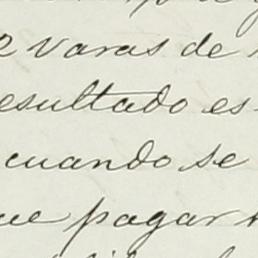 2 varas de
esultado es
cuando se
ue pagar